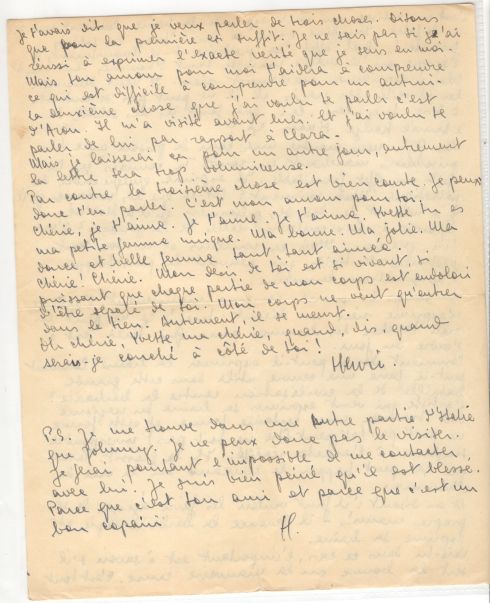 Je t'avais dit que je veux parler de trois choses. Disons
que pour la première ça suffit. Je ne sais pas si j'ai
réussi à exprimer l'exacte vérité que je sens en moi.
Mais ton amour pour moi t'aidera à comprendre
ce qui est difficile à comprendre pour un autrui.
La deuxième chose que j'ai voulu te parler c'est
d'Aron. Il m'a visité avant hier. Et j'ai voulu te
parler de lui par rapport à Clara.
Mais je laisserai ça pour un autre jour, autrement
la lettre sera trop volumineuse.
Par contre la troisième chose est bien courte. Je peux
donc t'en parler. C'est mon amour pour toi.
Chérie, je t'aime. Je t'aime. Je t'aime. Yvette tu es
ma petite femme unique. Ma bonne. Ma jolie. Ma
douce et belle femme tant, tant aimée.
Chérie! Chérie. Mon désir de toi est si vivant, si
puissant que chaque partie de mon corps est endolori
d'être séparé de toi. Mon corps ne veut qu'entrer
dans le tien. Autrement, il se meurt.
Oh chérie, Yvette ma chérie, quand, dis, quand
serais-je couché à côté de toi!
Henri.
P.S. Je me trouve dans une autre partie d'Italie
que Johnny. Je ne peux donc pas le visiter.
Je ferai pourtant l'impossible de me contacter
avec lui. Je suis bien peiné qu'il est blessé.
Parce que c'est ton ami et parce que c'est un
bon copain
H.